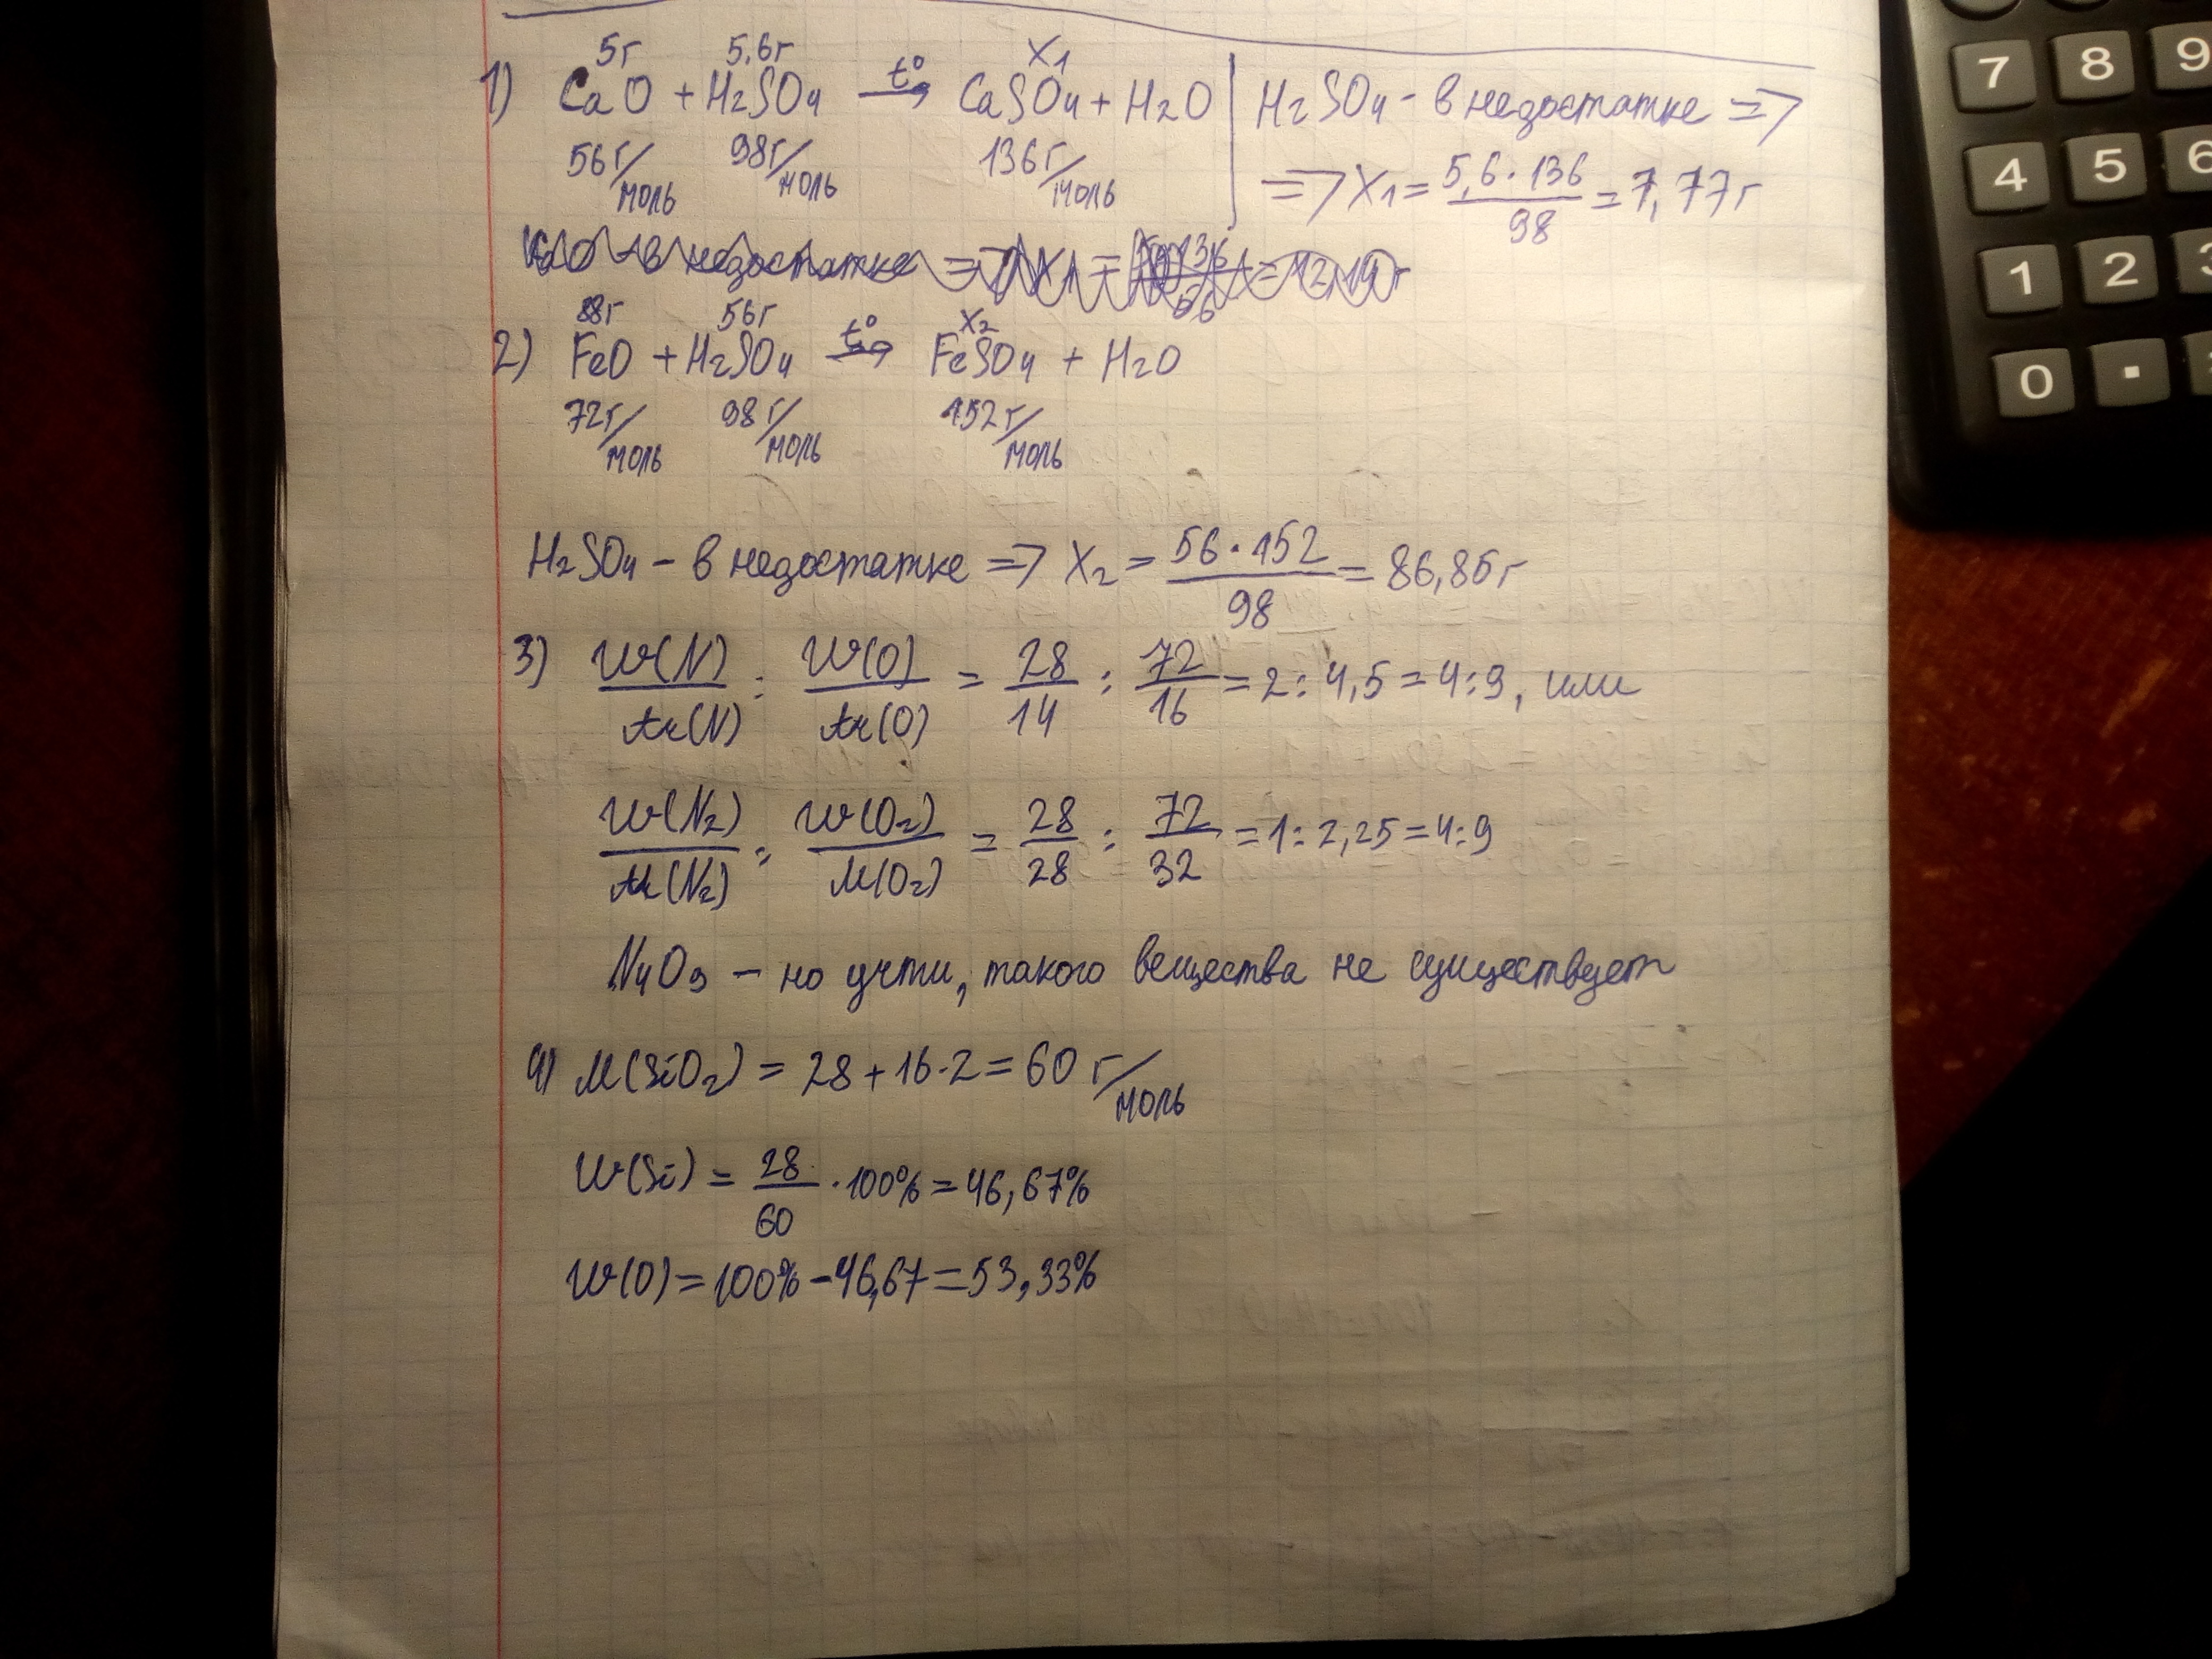 5г 5,6г X₁
1) CaO + H₂SO₄ t°→ CaSO₄ + H₂O | H₂SO₄ - в недостатке =>
56г/моль 98г/моль 136г/моль => X₁ = 5,6·136/98 = 7,77г
в недостатке => X₁ = = 12,14г
88г 56г X₂
2) FeO + H₂SO₄ t°→ FeSO₄ + H₂O
72г/моль 98г/моль 152г/моль
H₂SO₄ - в недостатке => X₂ = 56·152/98 = 86,85г
3) W(N)/Ar(N) : W(O)/Ar(O) = 28/14 : 72/16 = 2 : 4,5 = 4:9, или
W(N₂)/M(N₂) : W(O₂)/M(O₂) = 28/28 : 72/32 = 1 : 2,25 = 4:9
N₄O₉ - но учти, такого вещества не существует
4) M(SiO₂) = 28 + 16·2 = 60 г/моль
W(Si) = 28/60 · 100% = 46,67%
W(O) = 100% - 46,67 = 53,33%
7 8 9
4 5 6
1 2 3
0 .